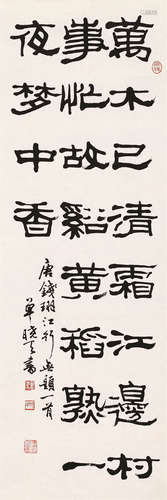 萬木已清霜江邊村
事忙故谿黄稻熟一
夜梦中香
唐錢珝江行無題一首
單曉天書